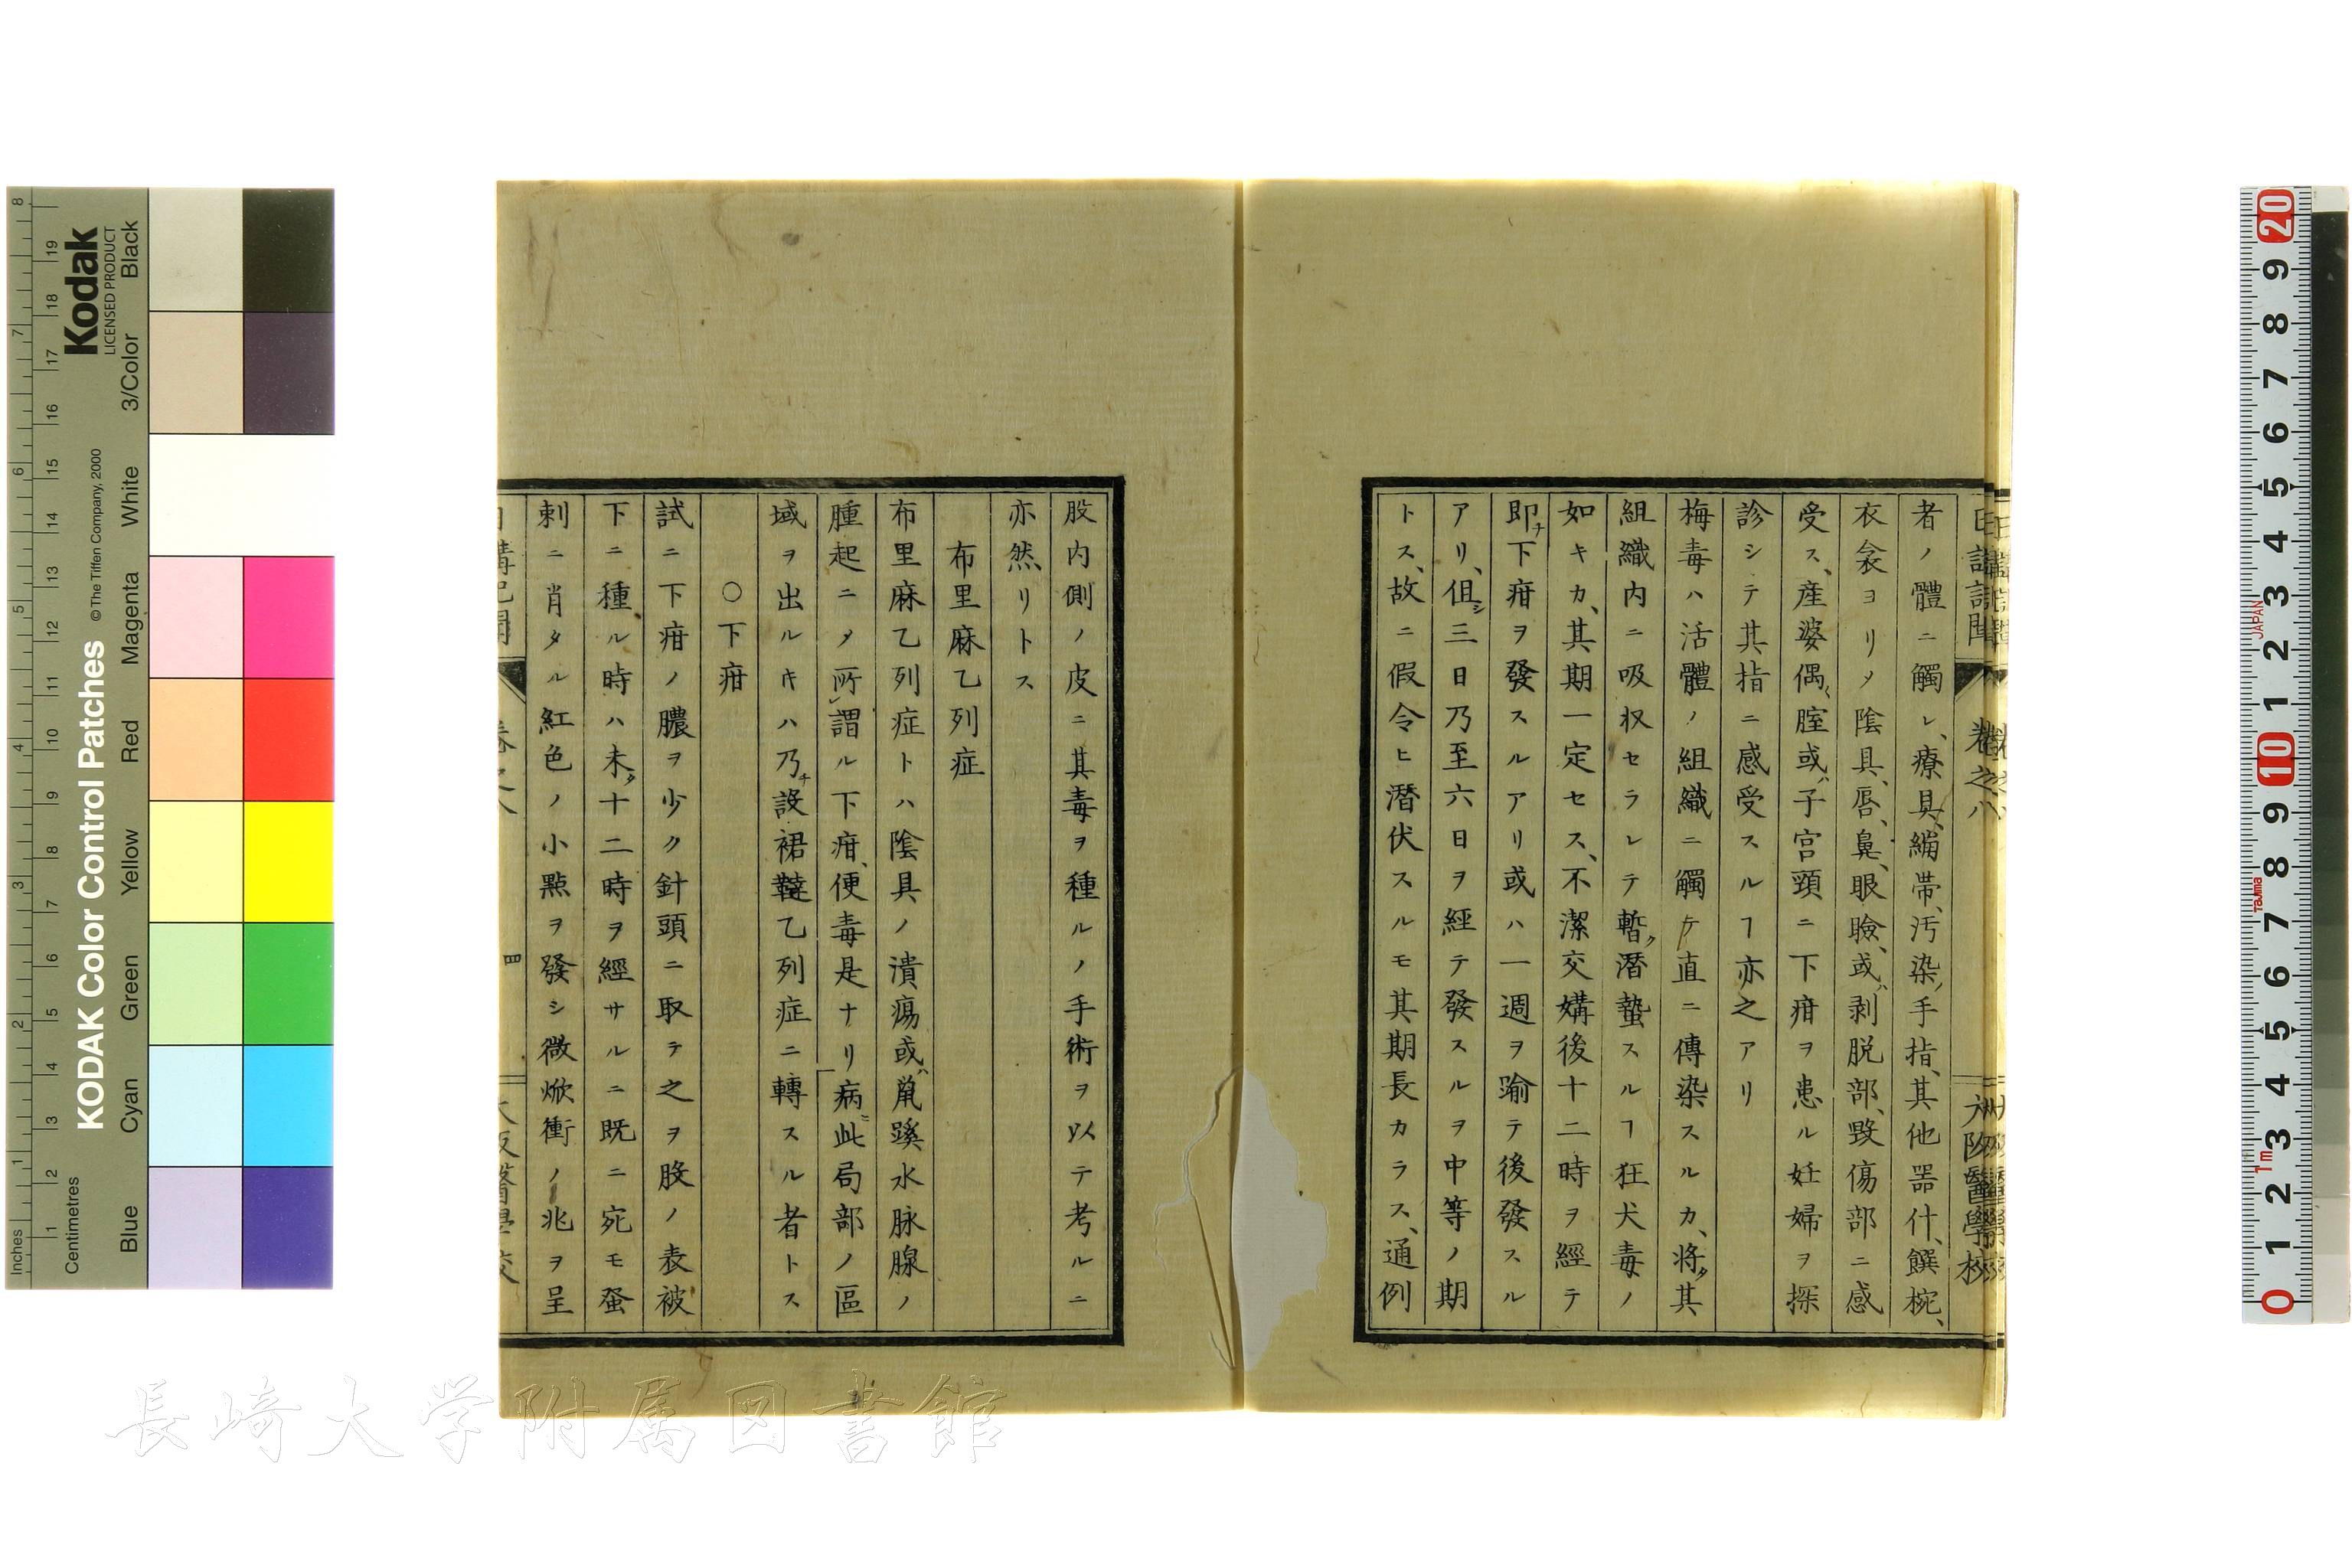 日講記聞 卷之八 大阪醫學校
者ノ體ニ觸レ、療具、繃帶、汚染ノ手指、其他器什、饌椀、
衣衾ヨリメ陰具、唇、鼻、眼瞼、或ハ剥脱部、毀傷部ニ感
受ス、産婆偶〻腟或ハ子宮頸ニ下疳ヲ患ル妊婦ヲ探
診シテ其指ニ感受スルヿ亦之アリ
梅毒ハ活體ノ組織ニ觸テ直ニ傳染スルカ、将タ其
組織内ニ吸収セラレテ暫ク潜蟄スルヿ狂犬毒ノ
如キカ、其期一定セス、不潔交媾後十二時ヲ經テ
即チ下疳ヲ發スルアリ或ハ一週ヲ踰テ後發スル
アリ、但シ三日乃至六日ヲ經テ發スルヲ中等ノ期
トス、故ニ假令ヒ潜伏スルモ其期長カラス、通例
股内側ノ皮ニ其毒ヲ種ルノ手術ヲ以テ考ルニ
亦然リトス
布里麻乙列症
布里麻乙列症トハ陰具ノ潰瘍或ハ鼠蹊水脉腺ノ
腫起ニメ所謂ル下疳、便毒是ナリ「病ニ此局部ノ區
域ヲ出ルキハ乃チ設裙韃乙列症ニ轉スル者トス
○下疳
試ニ下疳ノ膿ヲ少ク針頭ニ取テ之ヲ股ノ表被
下ニ種ル時ハ未タ十二時ヲ經サルニ既ニ宛モ蚤
刺ニ肖タル紅色ノ小點ヲ發シ微焮衝ノ兆ヲ呈
四
長崎大学附属図書館
Kodak
LICENSED PRODUCT
KODAK Color Control Patches
© The Tiffen Company, 2000
Blue Cyan Green Yellow Red Magenta White 3/Color Black
Inches 1 2 3 4 5 6 7 8
Centimetres 1 2 3 4 5 6 7 8 9 10 11 12 13 14 15 16 17 18 19
20 9 8 7 6 5 4 3 2 1 10 9 8 7 6 5 4 3 2 1 0
JAPAN
Tajima
1m